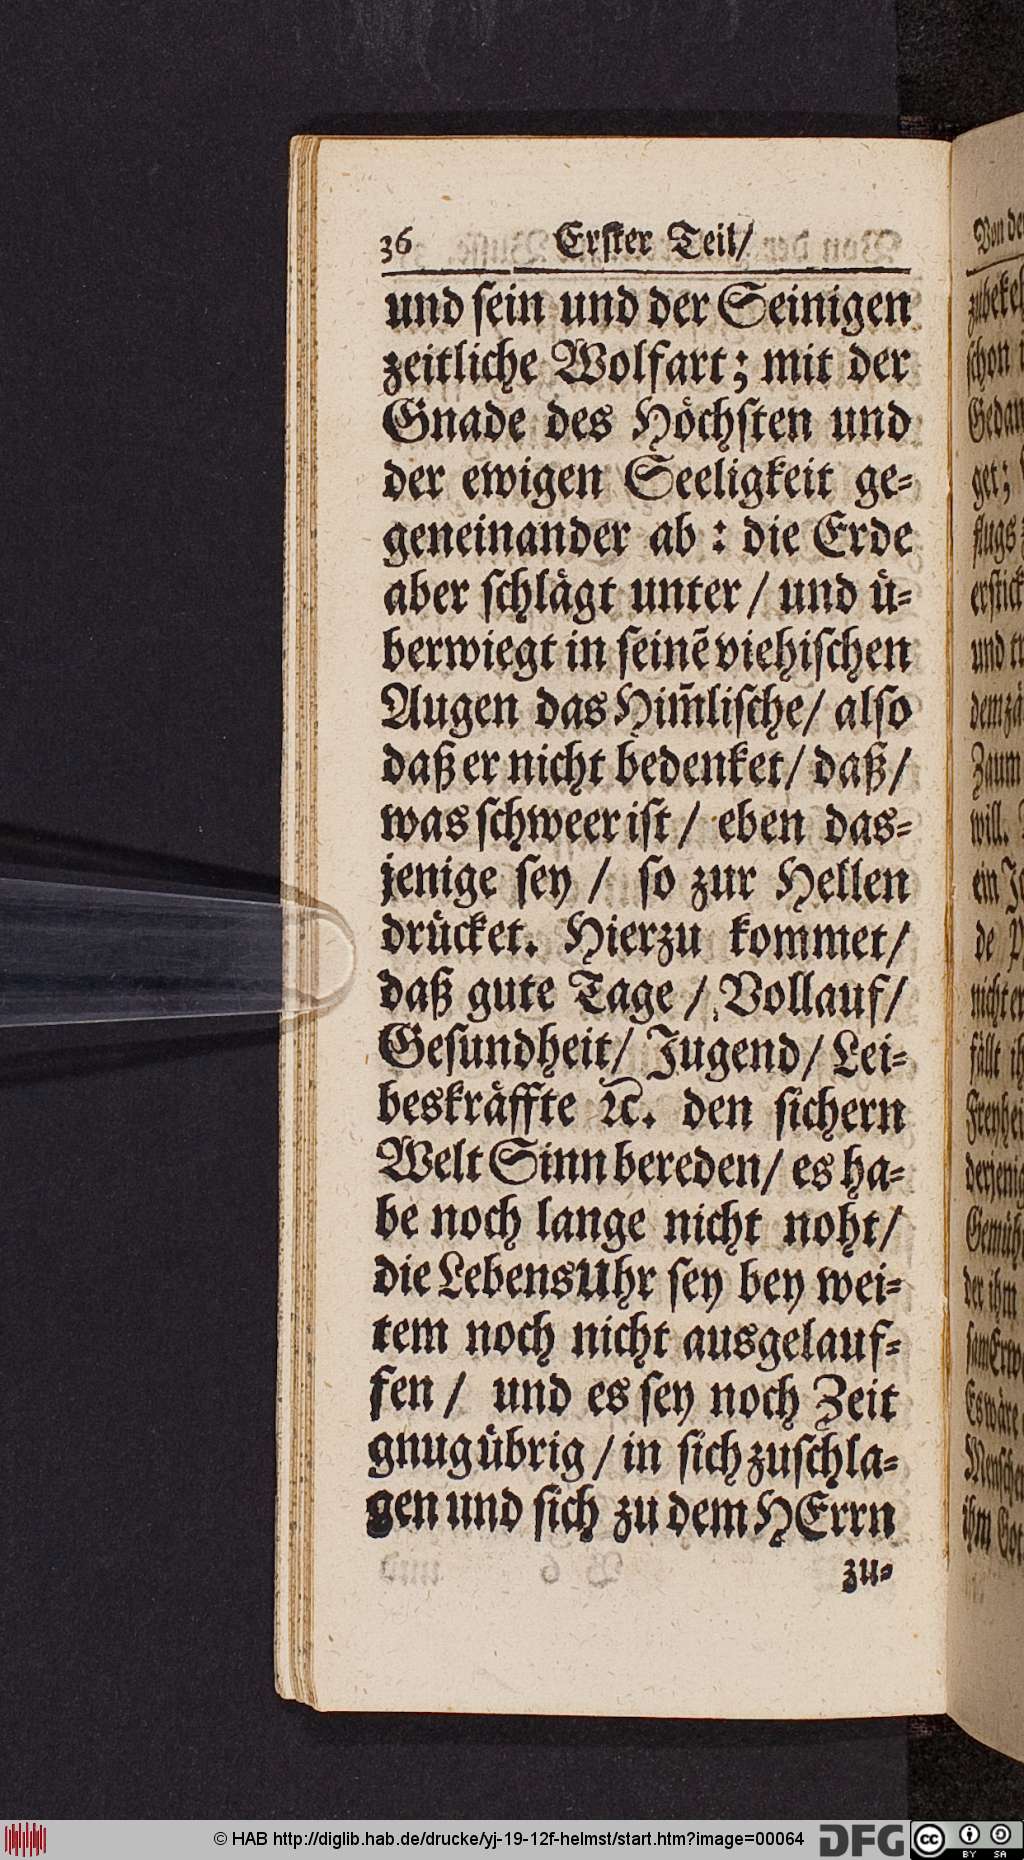 36 Erſter Teil/
und ſein und der Seinigen
zeitliche Wolfart; mit der
Gnade des Höchſten und
der ewigen Seeligkeit ge-
geneinander ab : die Erde
aber ſchlägt unter / und ü-
berwiegt in ſeinē viehiſchen
Augen das Him̃liſche/ alſo
daß er nicht bedenket/ daß/
was ſchweer iſt / eben das-
jenige ſey / ſo zur Hellen
drücket. Hierzu kommet/
daß gute Tage / Vollauf/
Geſundheit/ Jugend/ Lei-
beskräffte ꝛc. den ſichern
Welt Sinn bereden/ es ha-
be noch lange nicht noht/
die LebensUhr ſey bey wei-
tem noch nicht ausgelauf-
fen / und es ſey noch Zeit
gnug übrig / in ſich zuſchla-
gen und ſich zu dem HErrn
zu-
Von de
ſchon
Gedan
get;
flugs
erſtick
und
Zaum
will.
ein
de
nicht
fällt
Freyhei
derjenig
Gemüh
der ihm
Es wäre
Menſche
ihm Got
© HAB http://diglib.hab.de/drucke/yj-19-12f-helmst/start.htm?image=00064
DFG
cc BY SA